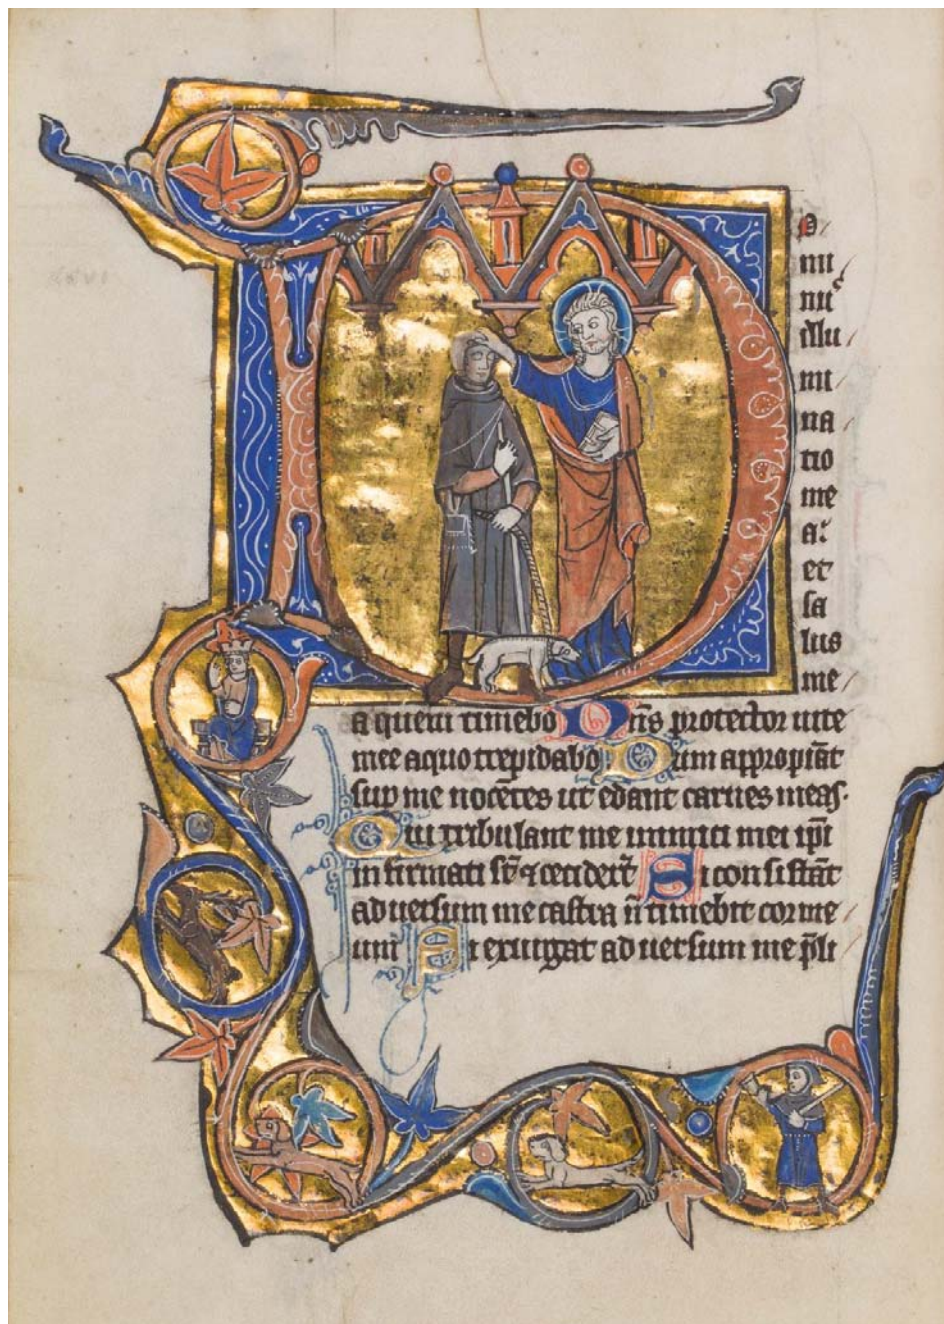 D
mi
nus
illu
mi
na
tio
me
a: et
sa
lus
me
a quem timebo Dns protector uite
mee a quo trepidabo Dum appropiāt
sup me nocētes ut edant carnes meas·
Qui tribulant me inimici mei ipī
infirmati st̄ & ceciderт̄ Si consistāt
aduersum me castra n̄ timebit cor me
um̄ Si exurgat aduersum me p̄li